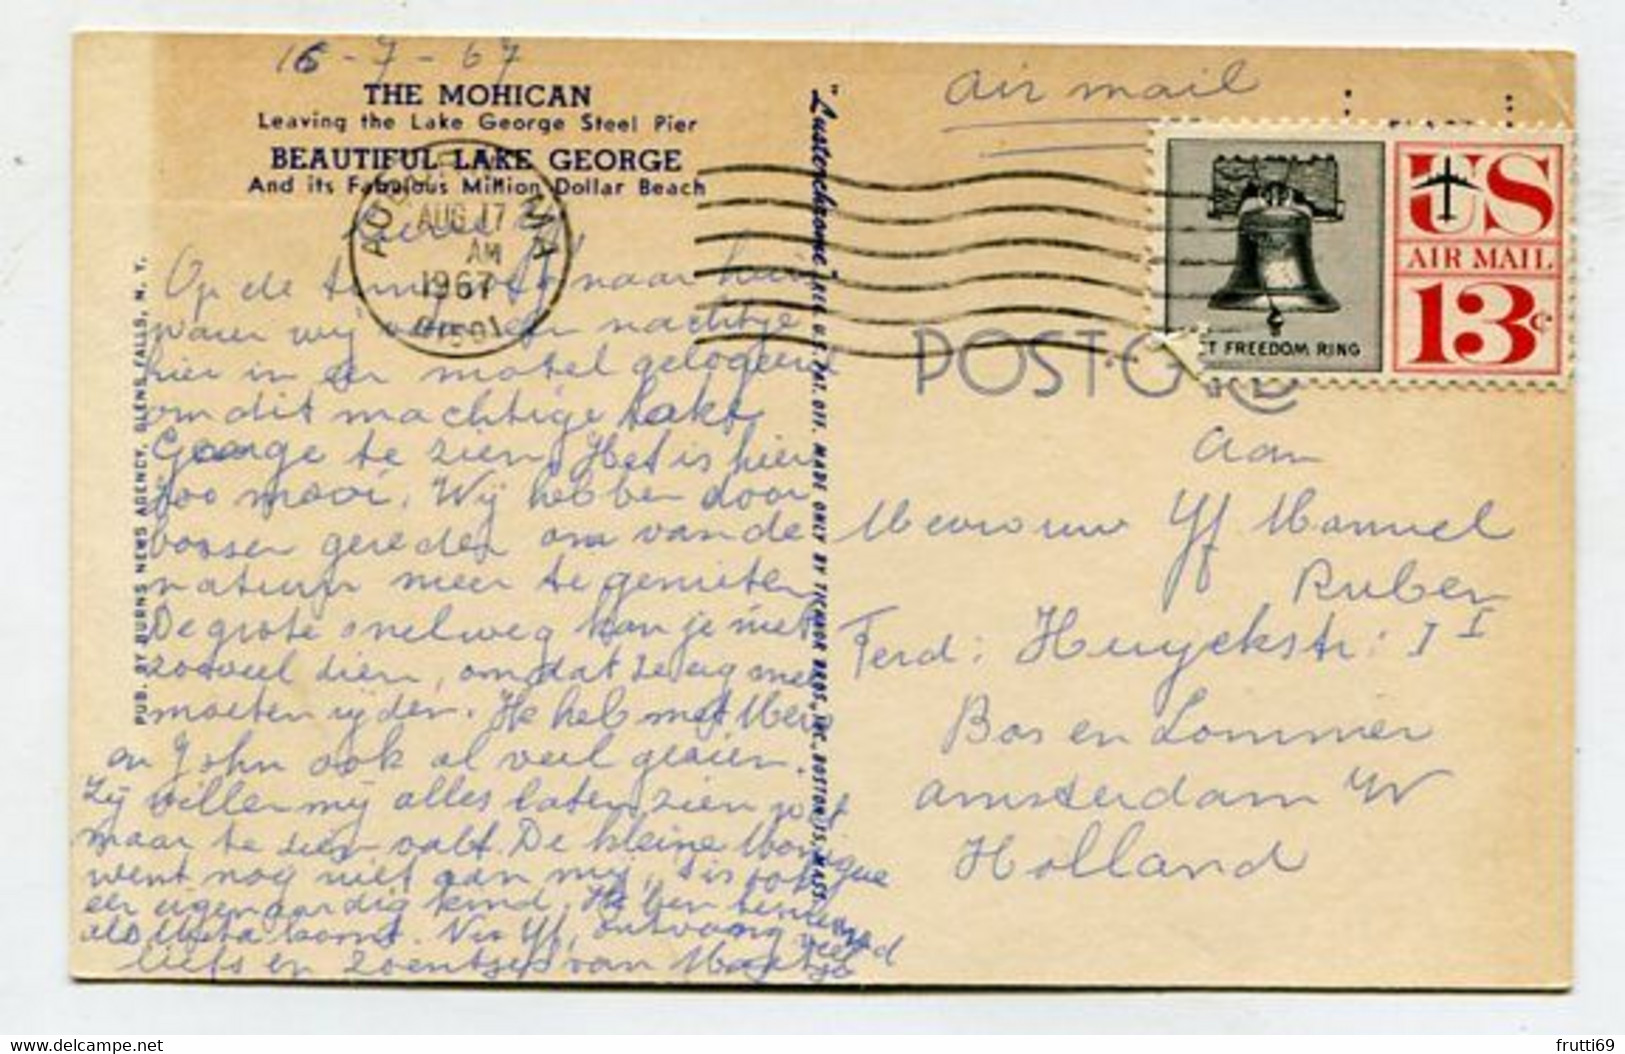 16-7-67
THE MOHICAN
Leaving the Lake George Steel Pier
BEAUTIFUL LAKE GEORGE
And its Fabulous Million Dollar Beach
AUG 17
AM
1967
01501
MA
Op de naar huis
waren wij een nachtje
hier in een motel gelogeerd
om dit machtige Lake
George te zien. Het is hier
zoo mooi. Wij hebben door
bossen gereden om van de
natuur meer te genieten
De grote snelweg kan je niet
zooveel zien, omdat ze
moeten rijden. Ik heb met
en John ook al veel
Zij willen mij alles laten zien wat
maar te zien valt. De kleine Monique
went nog niet aan mij, 't is ook
een eigenaardig kind. Ik ben benieuwd
als komt. Nu Yf, ontvang veel
liefs en zoentjes van
PUB. BY BURNS NEWS AGENCY, GLENS FALLS, N. Y.
"Lusterchrome" REG. U.S. PAT. OFF. MADE ONLY BY TICHNOR BROS., INC., BOSTON 15, MASS.
air mail
US
AIR MAIL
13c
ET FREEDOM RING
POST CARD
Aan
Mevrouw Yf Manuel
Ruben
Ferd: Huyckstr: I I
Bos en Lommer
Amsterdam W
Holland
delcampe.net
frutti69